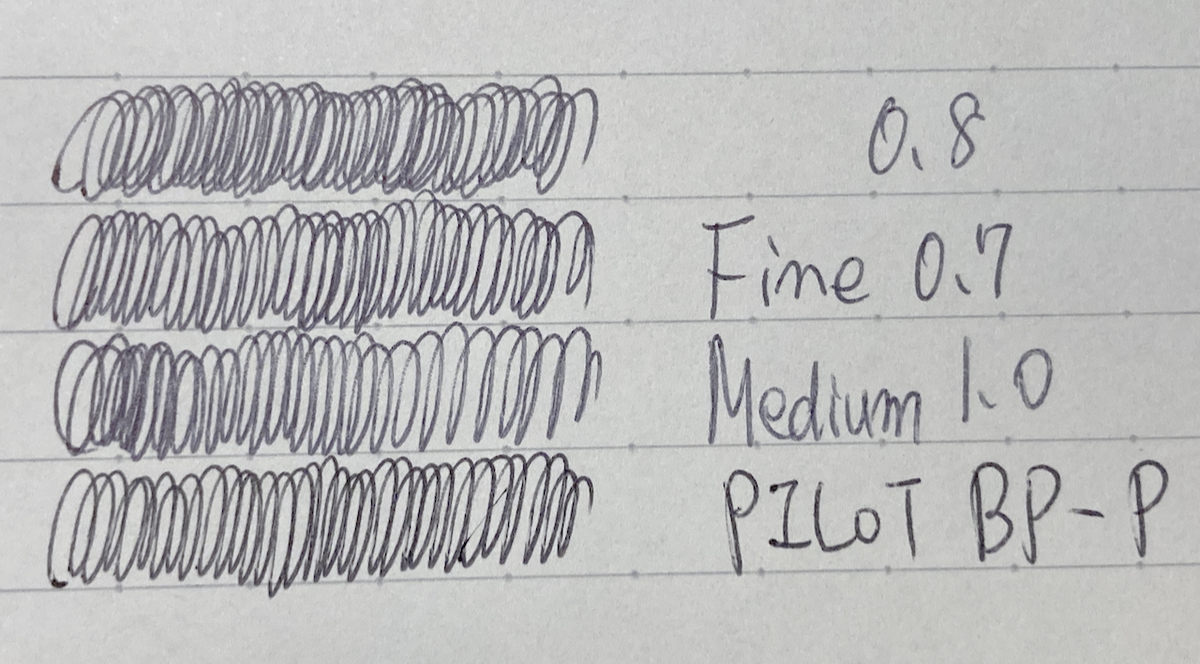 0.8
Fine 0.7
Medium 1.0
PILOT BP-P